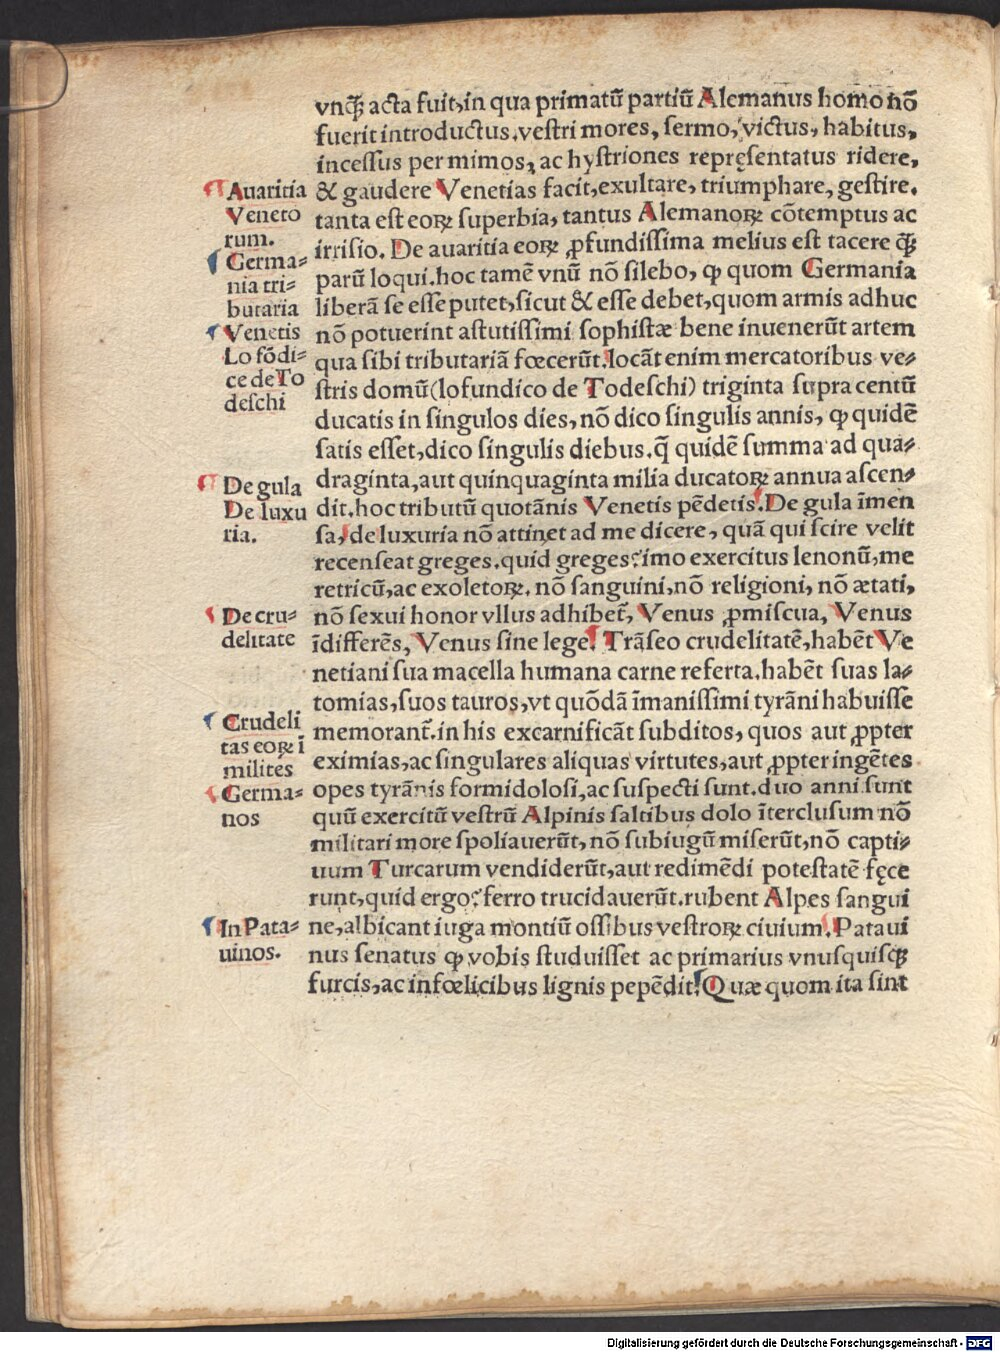 vnqȝ acta fuit, in qua primatū partiū Alemanus homo nō
fuerit introductus. vestri mores, sermo, victus, habitus,
incessus per mimos, ac hystriones repręsentatus ridere,
& gaudere Venetias facit, exultare, triumphare, gestire.
tanta est eoꝝ superbia, tantus Alemanoꝝ cōtemptus ac
irrisio. De auaritia eoꝝ ꝓfundissima melius est tacere qȝ
parū loqui. hoc tamē vnū nō silebo, ꝙ quom Germania
liberā se esse putet, sicut & esse debet, quom armis adhuc
nō potuerint astutissimi sophistæ bene inuenerūt artem
qua sibi tributariā fœcerūt. locāt enim mercatoribus ve-
stris domū (lofundico de Todeschi) triginta supra centū
ducatis in singulos dies, nō dico singulis annis, ꝙ quidē
satis esset, dico singulis diebus. q̄ quidē summa ad qua-
draginta, aut quinquaginta milia ducatoꝝ annua ascen-
dit. hoc tributū quotānis Venetis pēdetis. De gula īmen
sa, de luxuria nō attinet ad me dicere, quā qui scire velit
recenseat greges. quid greges? imo exercitus lenonū, me
retricū, ac exoletoꝝ. nō sanguini, nō religioni, nō ætati,
nō sexui honor vllus adhibet̄, Venus ꝓmiscua, Venus
īdifferēs, Venus sine lege. Trāseo crudelitatē, habēt Ve
netiani sua macella humana carne referta. habēt suas la-
tomias, suos tauros, vt quōdā īmanissimi tyrāni habuisse
memorant̄. in his excarnificāt subditos, quos aut ꝓpter
eximias, ac singulares aliquas virtutes, aut ꝓpter ingētes
opes tyrānis formidolosi, ac suspecti sunt. duo anni sunt
quū exercitū vestrū Alpinis saltibus dolo īterclusum nō
militari more spoliauerūt, nō subiugū miserūt, nō capti-
uum Turcarum vendiderūt, aut redimēdi potestatē fęce
runt, quid ergo? ferro trucidauerūt. rubent Alpes sangui
ne, albicant iuga montiū ossibus vestroꝝ ciuium. Pataui
nus senatus ꝙ vobis studuisset ac primarius vnusquisqȝ
furcis, ac infœlicibus lignis pepēdit. Quæ quom ita sint
Auaritia
Veneto
rum.
Germa-
nia tri-
butaria
Venetis
Lo fōdi-
ce de To
deschi
De gula
De luxu
ria.
De cru-
delitate
Crudeli
tas eoꝝ ī
milites
Germa-
nos
In Pata-
uinos.
Digitalisierung gefördert durch die Deutsche Forschungsgemeinschaft - DFG